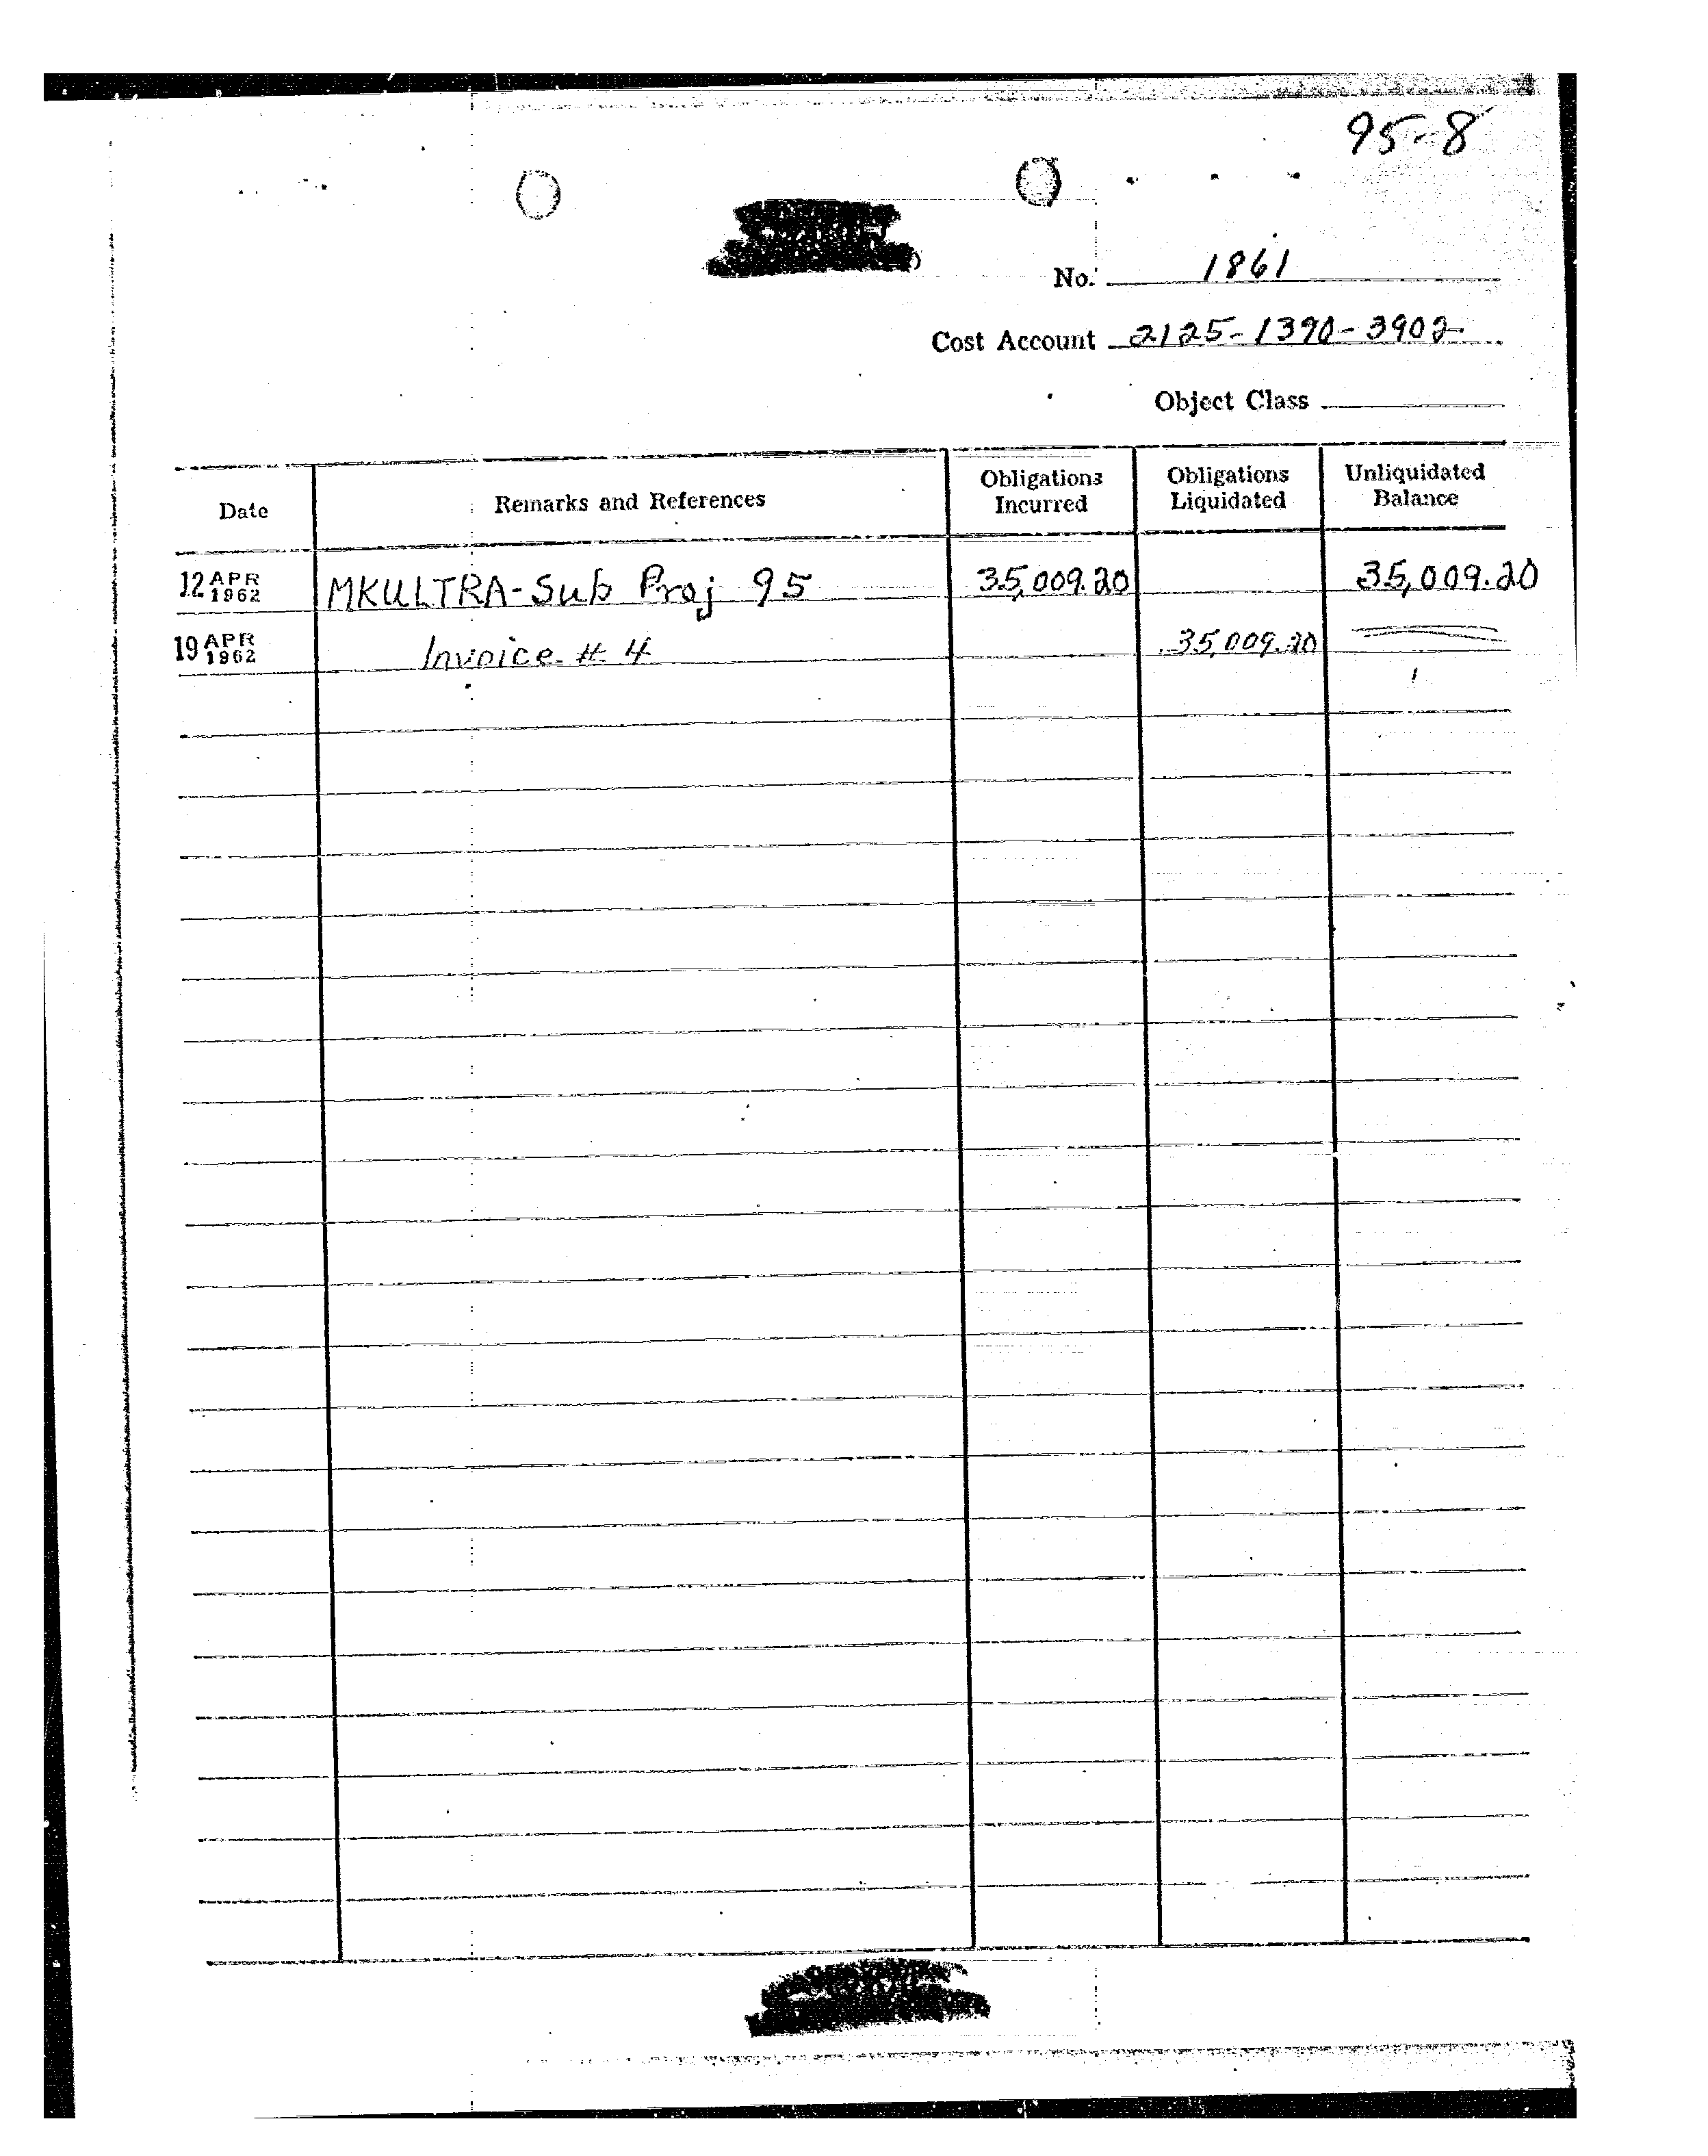 95-8
No. 1861
Cost Account 2125-1390-3902
Object Class
Date Remarks and References Obligations Incurred Obligations Liquidated Unliquidated Balance
12 APR 1962 MKULTRA-Sub Proj 95 35,009.20 35,009.20
19 APR 1962 Invoice # 4 35,009.20